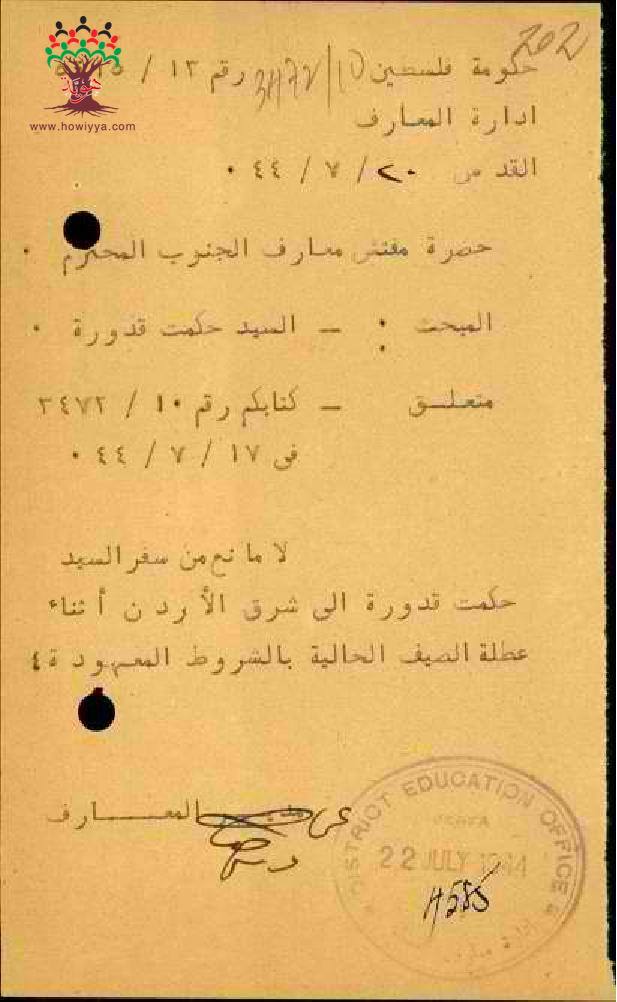 202
حكومة فلسطين
رقم ١٣ /
3472/10
ادارة المعارف
القدس ٢٠ / ٧ / ٤٤ ٠
www.howiyya.com
حضرة مفتش معارف الجنوب المحترم ٠
المبحث : – السيد حكمت قدورة ٠
متعلق – كتابكم رقم ١٠ / ٣٤٧٢
في ١٧ / ٧ / ٤٤ ٠
لا مانع من سفر السيد
حكمت قدورة الى شرق الأردن أثناء
عطلة الصيف الحالية بالشروط المعهودة
عن مدير المعارف
DISTRICT EDUCATION OFFICE
22 JULY 1944